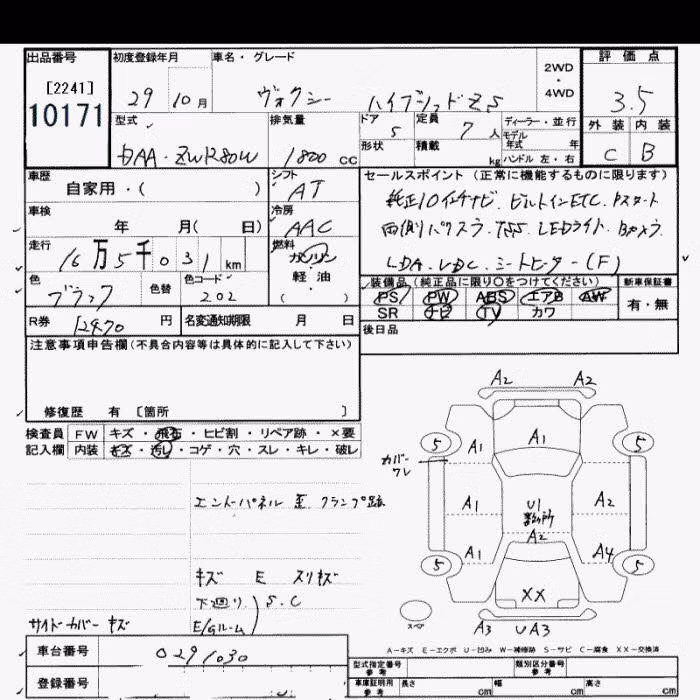 出品番号 初度登録年月 車名・グレード 2WD ・ 4WD 評価点
[2241]
10171 29 10月 ヴォクシー ハイブリッドZS 3.5
型式 排気量 ドア 定員 ディーラー・並行
DAA・ZWR80W 1800 cc 5 7 人 モデル年式 年
形状 積載 kg ハンドル 左・右
外装 内装
C B
車歴 自家用・( ) シフト AT
セールスポイント(正常に機能するものに限ります)
純正10インチナビ. ビルトインETC. Pスタート
車検 年 月( 日) 冷房 AAC
両側パワスラ. TSS. LEDライト. Bカメラ.
走行 16万5千031km 燃料 ガソリン・軽油・( )
LDA. VDC. シートヒーター(F)
色 ブラック 色替 色コード 202
装備品(純正品に限り○をつけてください) 新車保証書
PS PW ABS エアB AW 有・無
SR ナビ TV カワ
R券 12970 円 名変通知期限 月 日
後日品
注意事項申告欄(不具合内容等は具体的に記入して下さい)
修復歴 有 [箇所 ]
検査員 FW キズ・飛石・ヒビ割・リペア跡・×要
記入欄 内装 キズ・汚レ・コゲ・穴・スレ・キレ・破レ
エンドパネル 歪 クランプ跡
キズ E スリキズ
下廻り S.C
E/Gルーム
サイドカバー キズ
A2 A2
5 A1 A1 5
カバーワレ
A1 U1 A2
A2
A1 A4
5 XX 5
スペア A3 UA3
A-キズ E-エクボ U-凹み W-補修跡 S-サビ C-腐食 XX-交換済
車台番号 0291030
型式指定番号 参考 類別区分番号 参考
登録番号
車庫証明用 参考 長さ cm 幅 cm 高さ cm